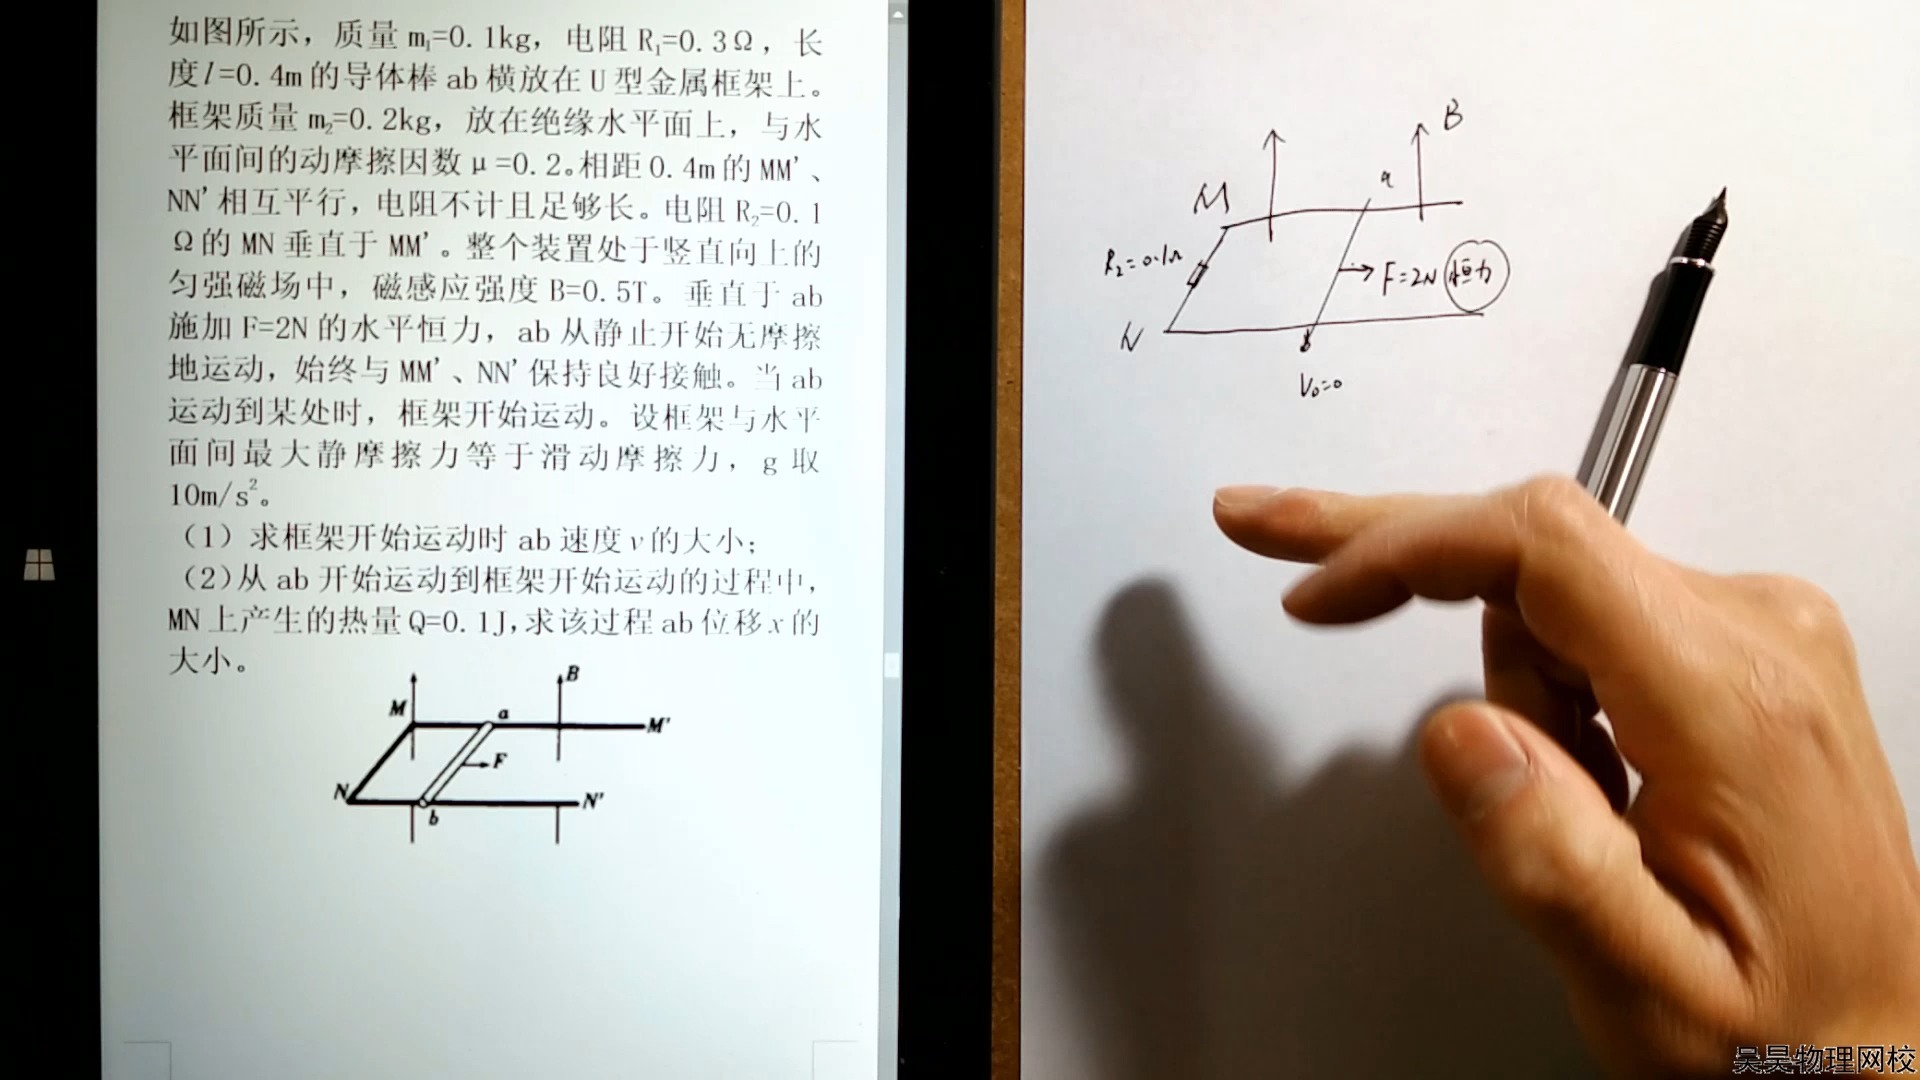 如图所示，质量 m₁=0.1kg，电阻 R₁=0.3Ω，长
度l=0.4m 的导体棒 ab 横放在 U 型金属框架上。
框架质量 m₂=0.2kg，放在绝缘水平面上，与水
平面间的动摩擦因数μ=0.2。相距 0.4m 的 MM'、
NN' 相互平行，电阻不计且足够长。电阻 R₂=0.1
Ω的 MN 垂直于 MM'。整个装置处于竖直向上的
匀强磁场中，磁感应强度 B=0.5T。垂直于 ab
施加 F=2N 的水平恒力，ab 从静止开始无摩擦
地运动，始终与 MM'、NN' 保持良好接触。当 ab
运动到某处时，框架开始运动。设框架与水平
面间最大静摩擦力等于滑动摩擦力，g 取
10m/s²。
（1）求框架开始运动时 ab 速度 v 的大小；
（2）从 ab 开始运动到框架开始运动的过程中，
MN 上产生的热量 Q=0.1J，求该过程 ab 位移 x 的
大小。
B
M
a
M'
F
N
N'
b
B
a
M
R₂=0.1Ω
F=2N 恒力
N
b
V₀=0
吴昊物理网校